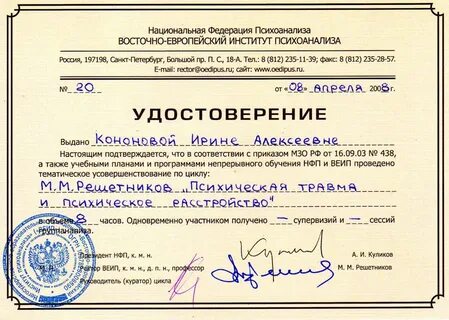 Национальная Федерация Психоанализа
ВОСТОЧНО-ЕВРОПЕЙСКИЙ ИНСТИТУТ ПСИХОАНАЛИЗА
Россия, 197198, Санкт-Петербург, Большой пр. П. С., 18-А. Тел.: 8 (812) 235-11-39; факс: 8 (812) 235-28-57.
E-mail: rector@oedipus.ru; сайт: www.oedipus.ru.
№ 20 от «08» апреля 2008 г.
УДОСТОВЕРЕНИЕ
Выдано Кононовой Ирине Алексеевне
Настоящим подтверждается, что в соответствии с приказом МЗО РФ от 16.09.03 № 438,
а также учебными планами и программами непрерывного обучения НФП и ВЕИП проведено
тематическое усовершенствование по циклу:
М.М.Решетников „Психическая травма
и психическое расстройство"
в объеме 8 часов. Одновременно участником получено – супервизий и – сессий
группанализа.
Президент НФП, к. м. н. А. И. Куликов
М. П. Ректор ВЕИП, к. м. н., д. п. н., профессор М. М. Решетников
Руководитель (куратор) цикла